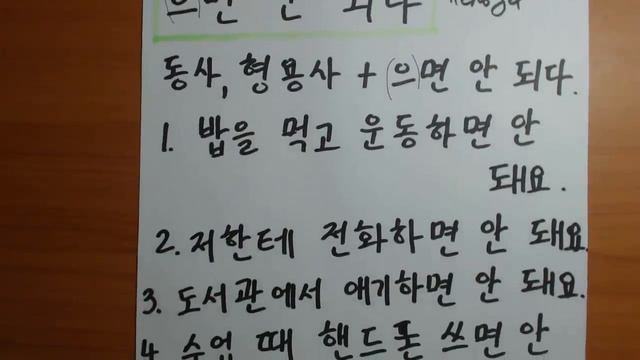 (으)면 안 되다
동사, 형용사 + (으)면 안 되다.
1. 밥을 먹고 운동하면 안
돼요.
2. 저한테 전화하면 안 돼요.
3. 도서관에서 얘기하면 안 돼요.
4. 수업 때 핸드폰 쓰면 안